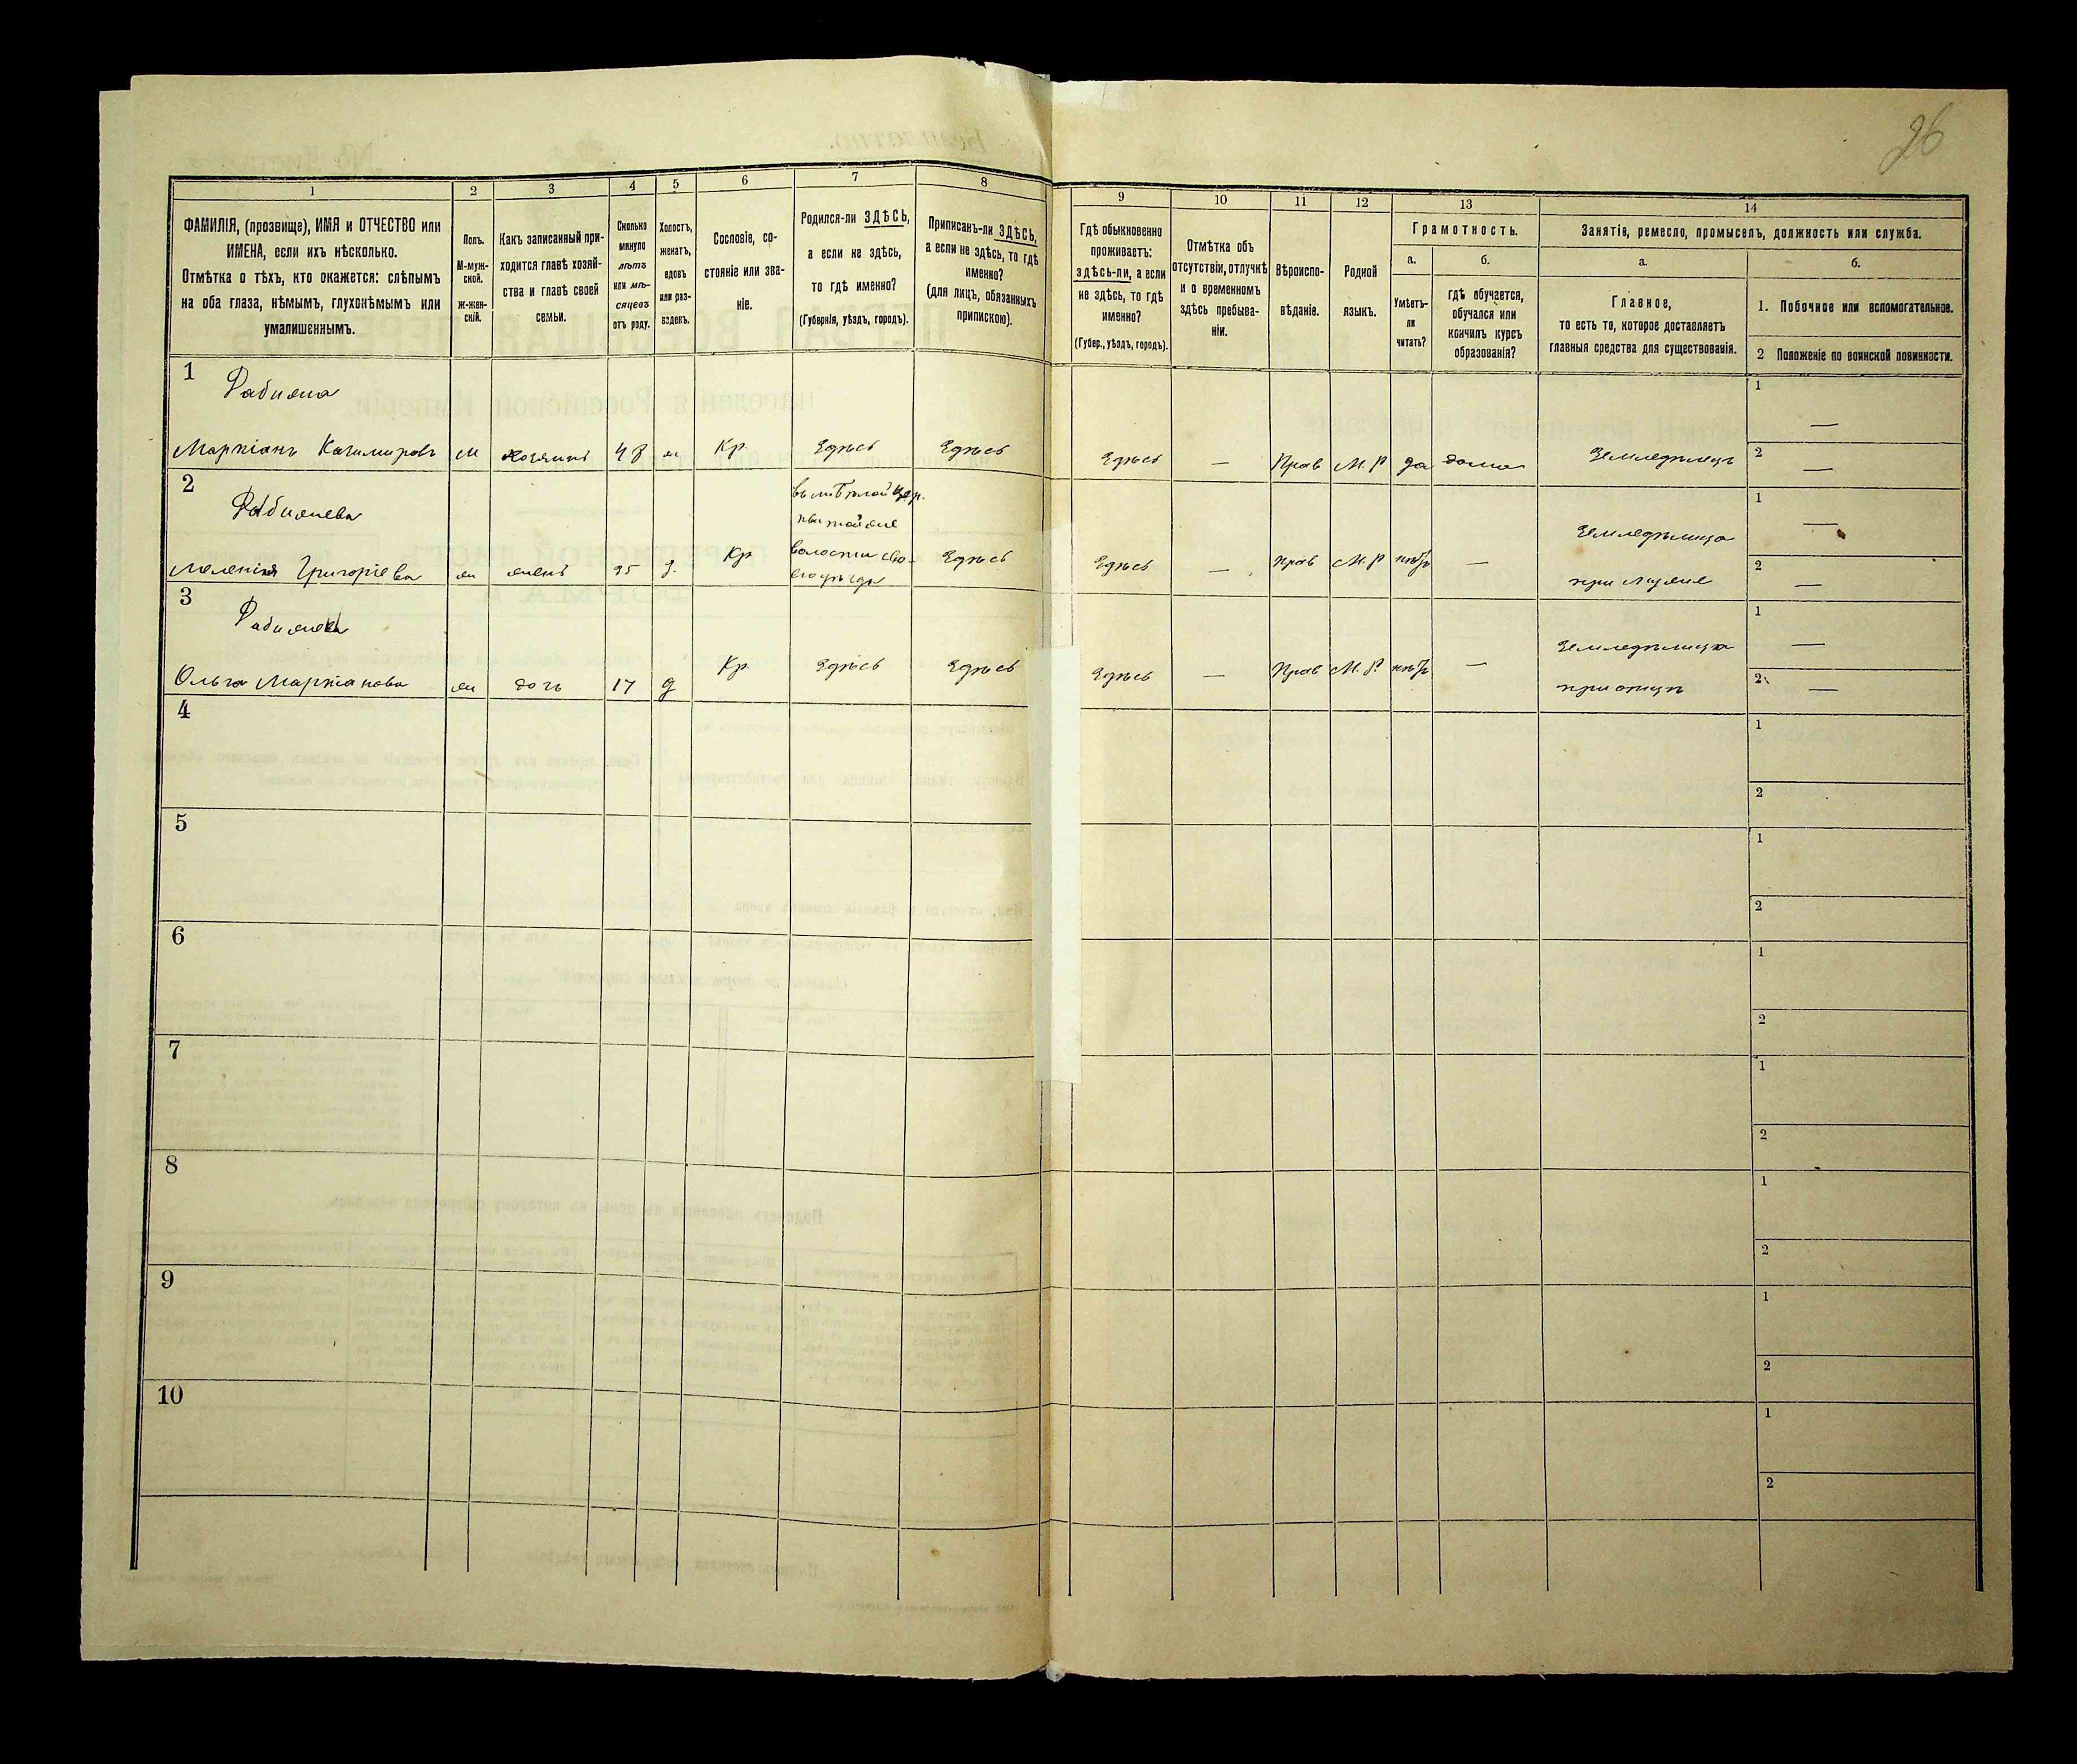 26
1 2 3 4 5 6 7 8 9 10 11 12 13 14
ФАМИЛІЯ, (прозвище), ИМЯ и ОТЧЕСТВО или
ИМЕНА, если ихъ нѣсколько.
Отмѣтка о тѣхъ, кто окажется: слѣпымъ
на оба глаза, нѣмымъ, глухонѣмымъ или
умалишеннымъ.
Полъ.
М-муж-
ской.
ж-жен-
скій.
Какъ записанный при-
ходится главѣ хозяй-
ства и главѣ своей
семьи.
Сколько
минуло
лѣтъ
или мѣ-
сяцевъ
отъ роду.
Холостъ,
женатъ,
вдовъ
или раз-
веденъ.
Сословіе, со-
стояніе или зва-
ніе.
Родился-ли ЗДѢСЬ,
а если не здѣсь,
то гдѣ именно?
(Губернія, уѣздъ, городъ).
Приписанъ-ли ЗДѢСЬ,
а если не здѣсь, то гдѣ
именно?
(для лицъ, обязанныхъ
припискою).
Гдѣ обыкновенно
проживаетъ:
здѣсь-ли, а если
не здѣсь, то гдѣ
именно?
(Губер., уѣздъ, городъ).
Отмѣтка объ
отсутствіи, отлучкѣ
и о временномъ
здѣсь пребыва-
ніи.
Вѣроиспо-
вѣданіе.
Родной
языкъ.
Грамотность.
а.
Умѣетъ-
ли
читать?
б.
гдѣ обучается,
обучался или
кончилъ курсъ
образованія?
Занятіе, ремесло, промыселъ, должность или служба.
а.
Главное,
то есть то, которое доставляетъ
главныя средства для существованія.
б.
1. Побочное или вспомогательное.
2 Положеніе по воинской повинности.
1
Рабиона
Маркіанъ Казимировъ м хозяинъ 48 ж Кр Здѣсь Здѣсь Здѣсь — Прав М.Р да дома Земледѣлецъ
1 —
2 —
2
Меленія Григоріева ж Кр Здѣсь Здѣсь — Прав М.Р нѣтъ — Земледѣлица
при мужѣ
волости сво-
1 —
2 —
3
Ольга Маркіанова ж дочь 17 д Кр Здѣсь Здѣсь Здѣсь — Прав М.Р нѣтъ — Земледѣлица
при отцѣ
1 —
2 —
4
1
2
5
1
2
6
1
2
7
1
2
8
1
2
9
1
2
10
1
2